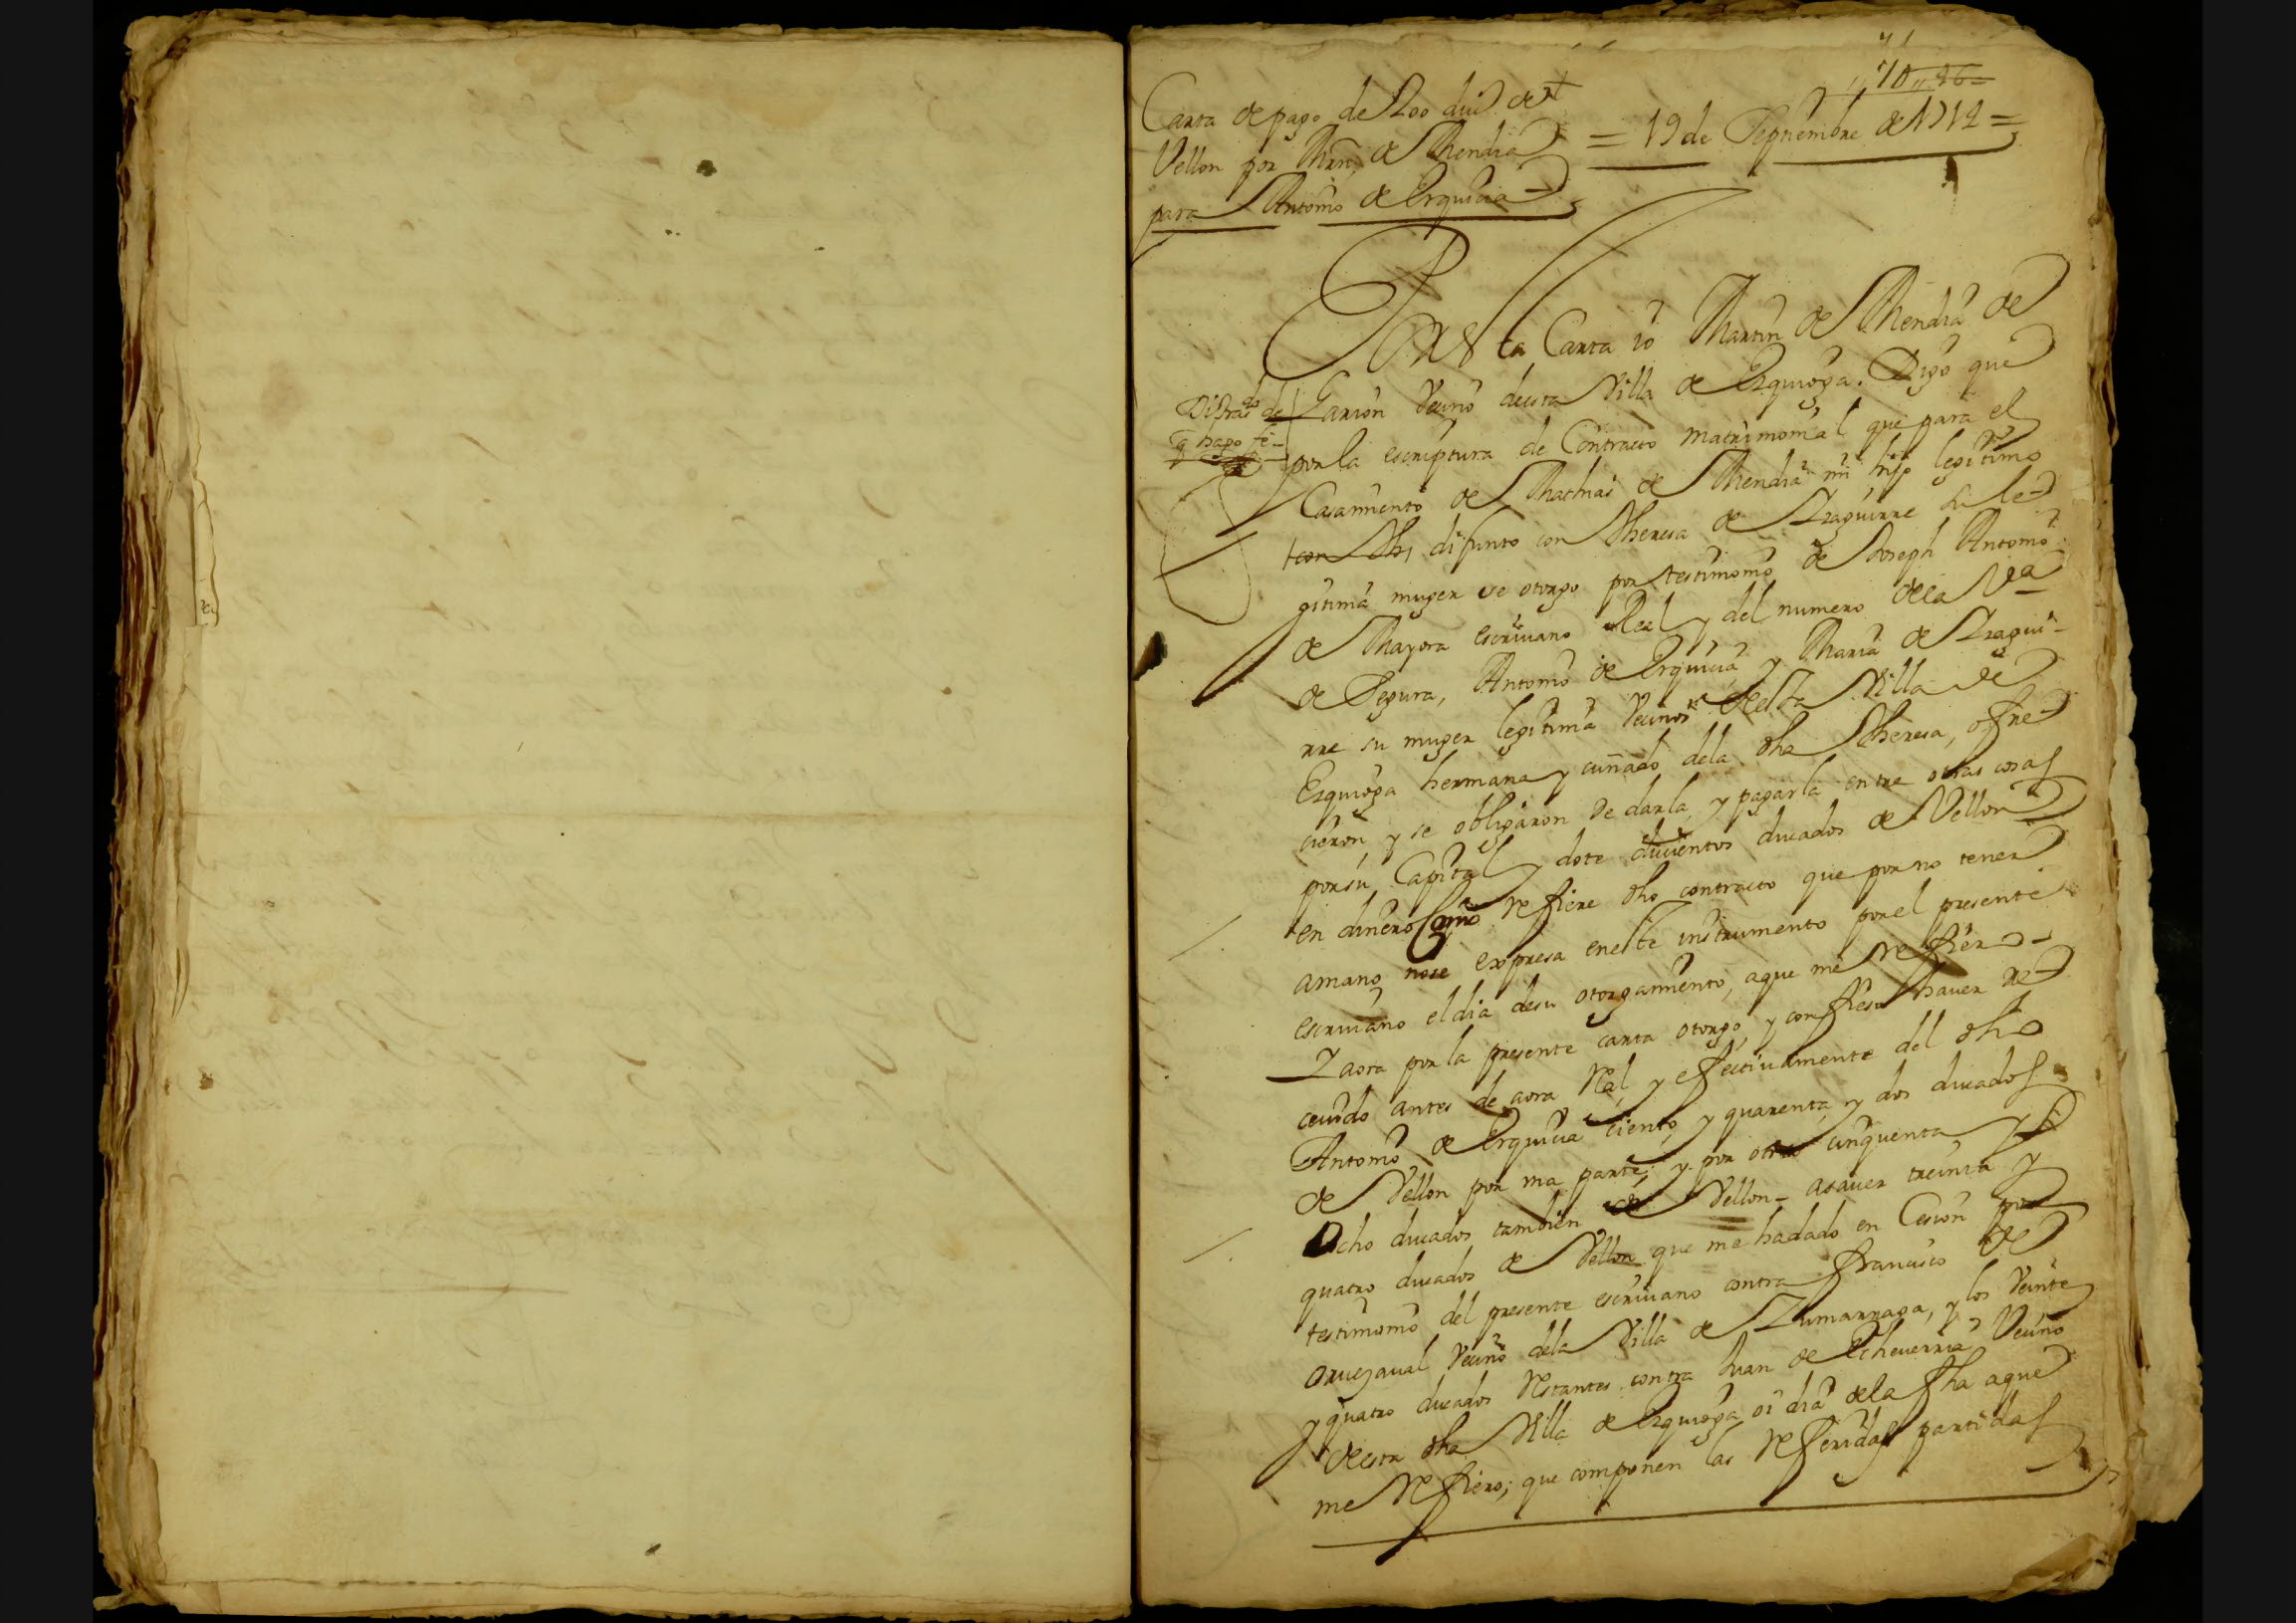 71
70 "26
Carta de pago de 200 du.s de
Vellon por Mrn. de Mendia
para Antonio de Erquicia
= 19 de Septiembre de 1712 =
Por esta Carta io Martin de Mendia de
Garion vecino de esta Villa de Ezquioga. Digo que
por la escriptura de Contracto matrimonial que para el
Casamiento de Mathias de Mendia mi hijo legitimo
difunto con Theresa de Yzaguirre su le
gitima muger se otorgo por testimonio de Joseph Antonio
de Mayora escriuano Real y del numero de la Va
de Segura, Antonio de Erquicia y Maria de Yzagui-
rre su muger legitima vecinos de esta Villa de
Ezquioga hermana y cuñado dela dha Theresa, offre
cieron y se obligaron de darla, y pagarla entre otras cosas
por su Capital y dote ducientos ducados de Vellon
en dinero Como refiere dho contracto que por no tener
amano nose expresa eneste instrumento porel presente
escriuano el dia desu otorgamiento, aque me refiero-
Y aora por la presente carta otorgo, y confieso hauer re
ceuido antes de aora Ral y efectiuamente del dho
Antonio de Erquicia ciento y quarenta y dos ducados
de Vellon por vna parte; y por otra cinquenta y
Ocho ducados tambien de Vellon- asauer treinta y
quatro ducados de Vellon que me hadado en Cesion por
testimonio del presente escriuano contra francisco de
Oruesaual vecino dela Villa de Zumarraga, y los veinte
y quatro ducados Restantes contra Juan de Echeuerria vecino
de esta dha Villa de Ezquioga oi dia dela fha aque
me Refiero; que componen las Referidas partidas
q hago fe-